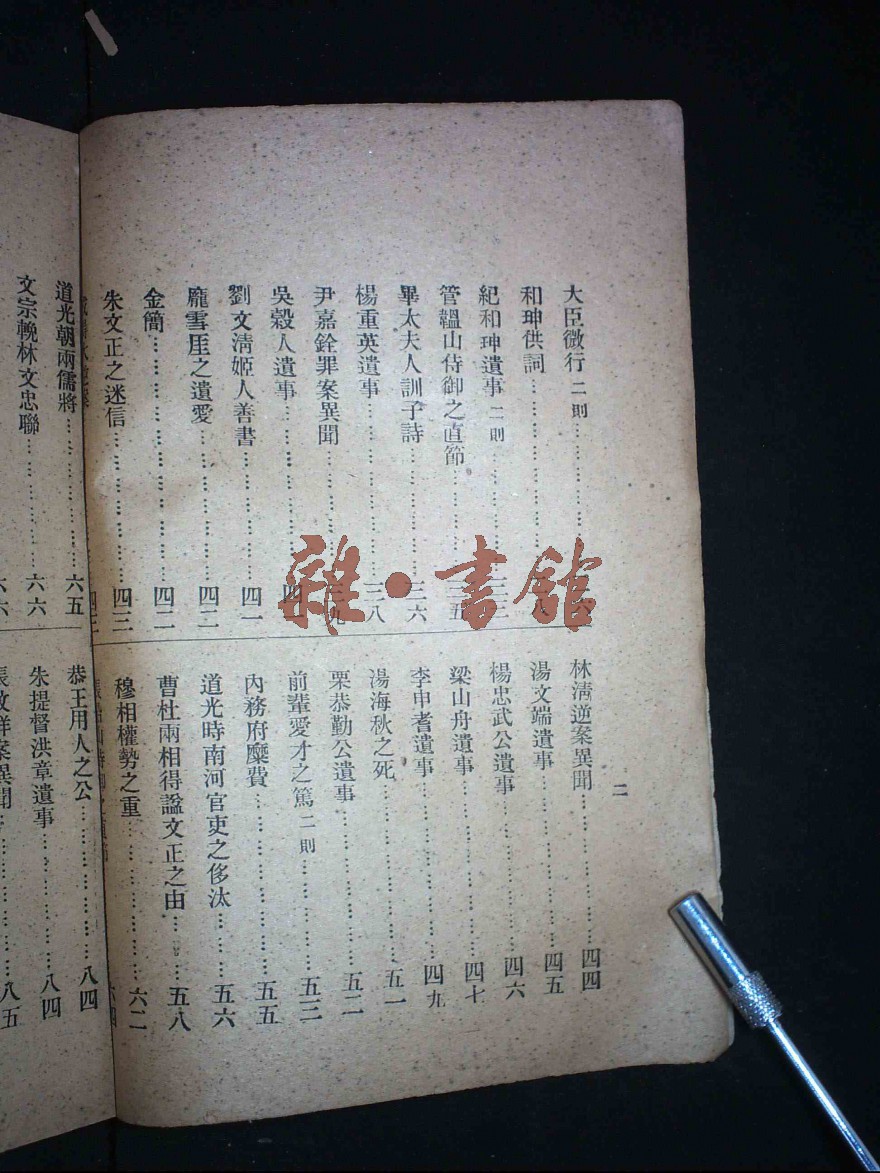 二
大臣微行 二則
和珅供詞
紀和珅遺事 二則
管韞山侍御之直節
畢太夫人訓子詩 三六
楊重英遺事 三八
尹嘉銓罪案異聞
吳穀人遺事
劉文清姬人善書 四一
龐雪厓之遺愛 四二
金簡 四二
朱文正之迷信 四三
林清逆案異聞 四四
湯文端遺事 四五
楊忠武公遺事 四六
梁山舟遺事 四七
李申耆遺事 四九
湯海秋之死 五一
栗恭勤公遺事 五二
前輩愛才之篤 二則 五三
內務府糜費 五五
道光時南河官吏之侈汰 五六
曹杜兩相得諡文正之由 五八
穆相權勢之重 六二
道光朝兩儒將 六五
文宗輓林文忠聯 六六
恭王用人之公 八四
朱提督洪章遺事 八四
案異聞 八五
雜·書館